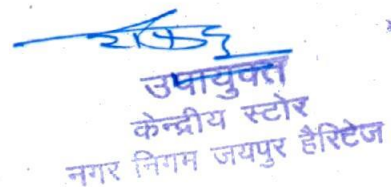 उपायुक्त
केन्द्रीय स्टोर
नगर निगम जयपुर हैरिटेज